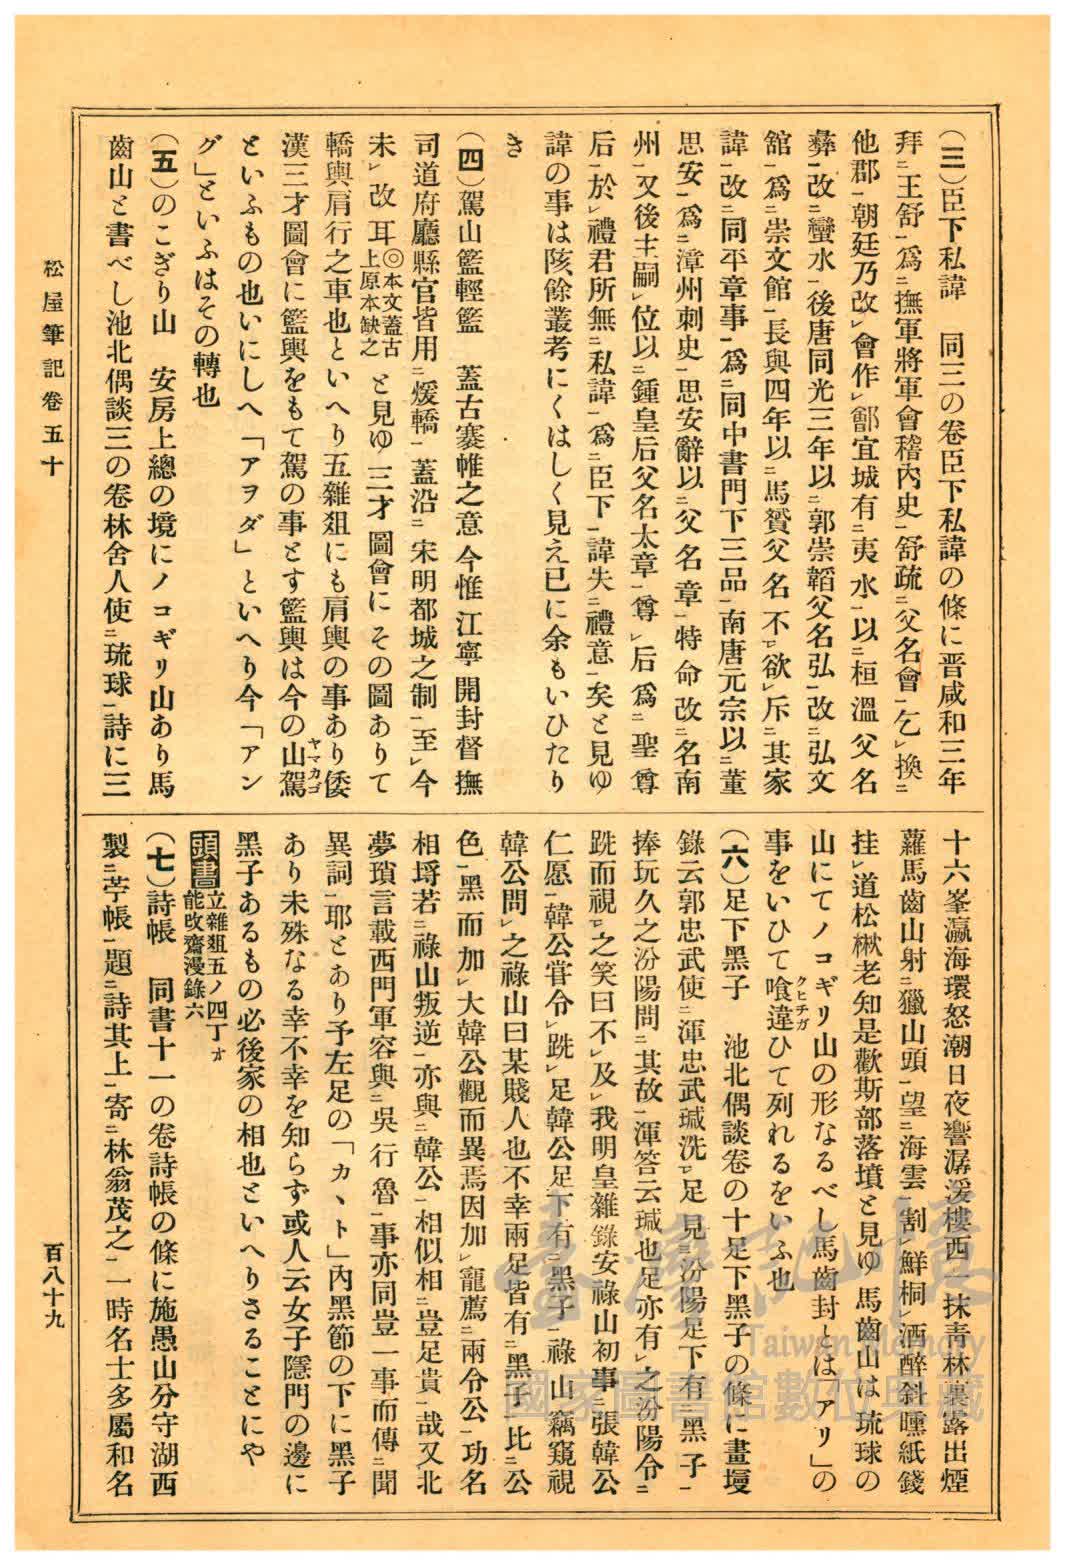 (三)臣下私諱　同三の卷臣下私諱の條に晋咸和三年
拜ニ王舒一爲ニ撫軍將軍會稽內史一舒疏ニ父名會一乞レ換ニ
他郡一朝廷乃改レ會作レ鄶宜城有ニ夷水一以ニ桓溫父名
彝一改ニ蠻水一後唐同光三年以ニ郭崇韜父名弘一改ニ弘文
舘一爲ニ崇文館一長興四年以ニ馬贇父名不ㇾ欲レ斥ニ其家
諱一改ニ同平章事一爲ニ同中書門下三品一南唐元宗以ニ董
思安一爲ニ漳州刺史一思安辭以ニ父名章一特命改ニ名南
州一又後主嗣レ位以ニ鍾皇后父名太章一尊レ后爲ニ聖尊
后一於レ禮君所無ニ私諱一爲ニ臣下一諱失ニ禮意一矣と見ゆ
諱の事は陔餘叢考にくはしく見え已に余もいひたり
き
(四)駕山籃輕籃　蓋古褰帷之意今惟江寧開封督撫
司道府廳縣官皆用ニ煖轎一蓋沿ニ宋明都城之制一至レ今
未レ改耳◎本文蓋古上原本缺之と見ゆ三才圖會にその圖ありて
轎輿肩行之車也といへり五雜俎にも肩輿の事あり倭
漢三才圖會に籃輿をもて駕の事とす籃輿は今の山駕ヤマカゴ
といふもの也いにしへ「アヲダ」といへり今「アン
グ」といふはその轉也
(五)のこぎり山　安房上總の境にノコギリ山あり馬
齒山と書べし池北偶談三の卷林舍人使ニ琉球一詩に三
十六峯瀛海環怒潮日夜響潺湲樓西一抹靑林裏露出煙
蘿馬齒山射ニ獵山頭一望ニ海雲一割レ鮮桐レ酒醉斜曛紙錢
挂レ道松楸老知是歡斯部落墳と見ゆ馬齒山は琉球の
山にてノコギリ山の形なるべし馬齒封とは「アリ」の
事をいひて喰違クヒチガひて列れるをいふ也
(六)足下黑子　池北偶談卷の十足下黑子の條に畫墁
錄云郭忠武使ニ渾忠武瑊洗ㇾ足見ニ汾陽足下有ニ黑子一
捧玩久之汾陽問ニ其故一渾答云瑊也足亦有レ之汾陽令ニ
跣而視ㇾ之笑曰不レ及レ我明皇雜錄安祿山初事ニ張韓公
仁愿一韓公甞令レ跣レ足韓公足下有ニ黑子一祿山竊窺視
韓公問レ之祿山曰某賤人也不幸兩足皆有ニ黑子一比ニ公
色一黑而加レ大韓公觀而異焉因加レ寵薦ニ兩令公一功名
相埒若ニ祿山叛逆一亦與ニ韓公一相似相ニ豈足貴一哉又北
夢瑣言載西門軍容與ニ吳行魯一事亦同豈一事而傳ニ聞
異詞一耶とあり予左足の「カヽト」內黑節の下に黑子
あり未殊なる幸不幸を知らず或人云女子隱門の邊に
黑子あるもの必後家の相也といへりさることにや
頭書　立雜俎五ノ四丁オ
能改齋漫錄六
(七)詩帳　同書十一の卷詩帳の條に施愚山分守湖西
製ニ苧帳一題ニ詩其上一寄ニ林翁茂之一一時名士多屬和名
松屋筆記卷五十
百八十九
臺灣記憶
Taiwan Memory
國家圖書館數位典藏